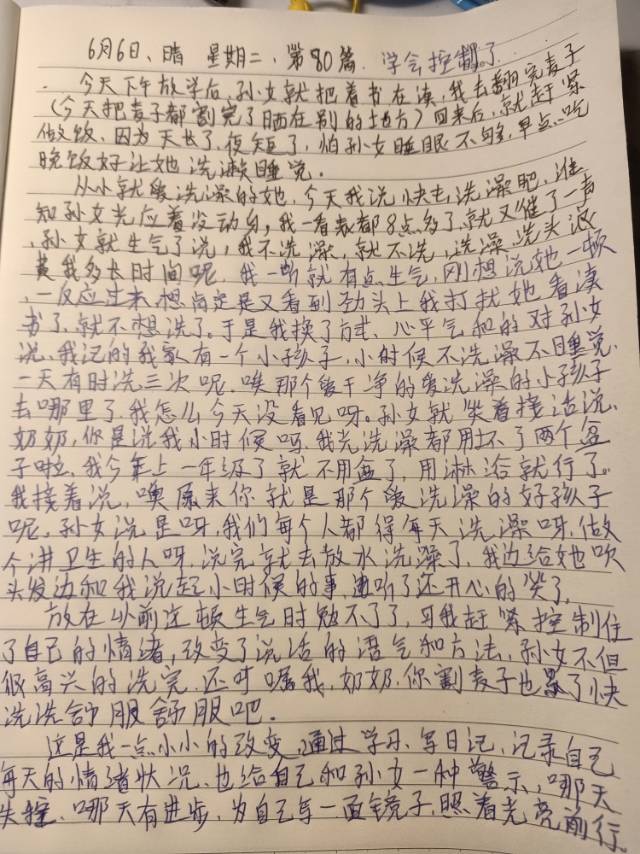 6月6日、晴 星期二、第80篇. 学会控制了
今天下午放学后,孙女就把着书在读,我去翻完麦子
(今天把麦子都割完了晒在别的地方)回来后,就赶紧
做饭、因为天长了,夜短了,怕孙女睡眠不够,早点吃
晚饭好让她洗漱睡觉.
从小就爱洗澡的她,今天我说快去洗澡吧,谁
知孙女光应着没动身,我一看表都8点多了,就又催了一声
,孙女就生气了说,我不洗澡,就不洗,洗澡洗头浪
费我多长时间呢,我一听就有点生气,刚想说她一顿
,一反应过来,想肯定是又看到劲头上我打扰她看读
书了,就不想洗了。于是我换了方式、心平气和的对孙女
说、我记的我家有一个小孩子,小时候不洗澡不睡觉,
一天有时洗三次呢,唉那个爱干净的爱洗澡的小孩子
去哪里了,我怎么今天没看见呀。孙女就笑着接话说,
奶奶,你是说我小时候吗,我光洗澡都用坏了两个盆
子啦、我今年上一年级了就不用盆了,用淋浴就行了。
我接着说,噢原来你就是那个爱洗澡的好孩子
呢,孙女说是呀,我们每个人都得每天洗澡呀,做
个讲卫生的人呀,说完就去放水洗澡了,我边给她吹
头发边和我说起小时候的事,听了还开心的笑了,
放在以前这顿生气时免不了了,可我赶紧控制住
了自己的情绪,改变了说话的语气和方法,孙女不但
很高兴的洗完,还叮嘱我,奶奶,你割麦子也累了快
洗洗舒服舒服吧.
这是我一点小小的改变,通过学习、写日记,记录自己
每天的情绪状况、也给自己和孙女一种警示,哪天
失控、哪天有进步,为自己写一面镜子,照着光亮前行。